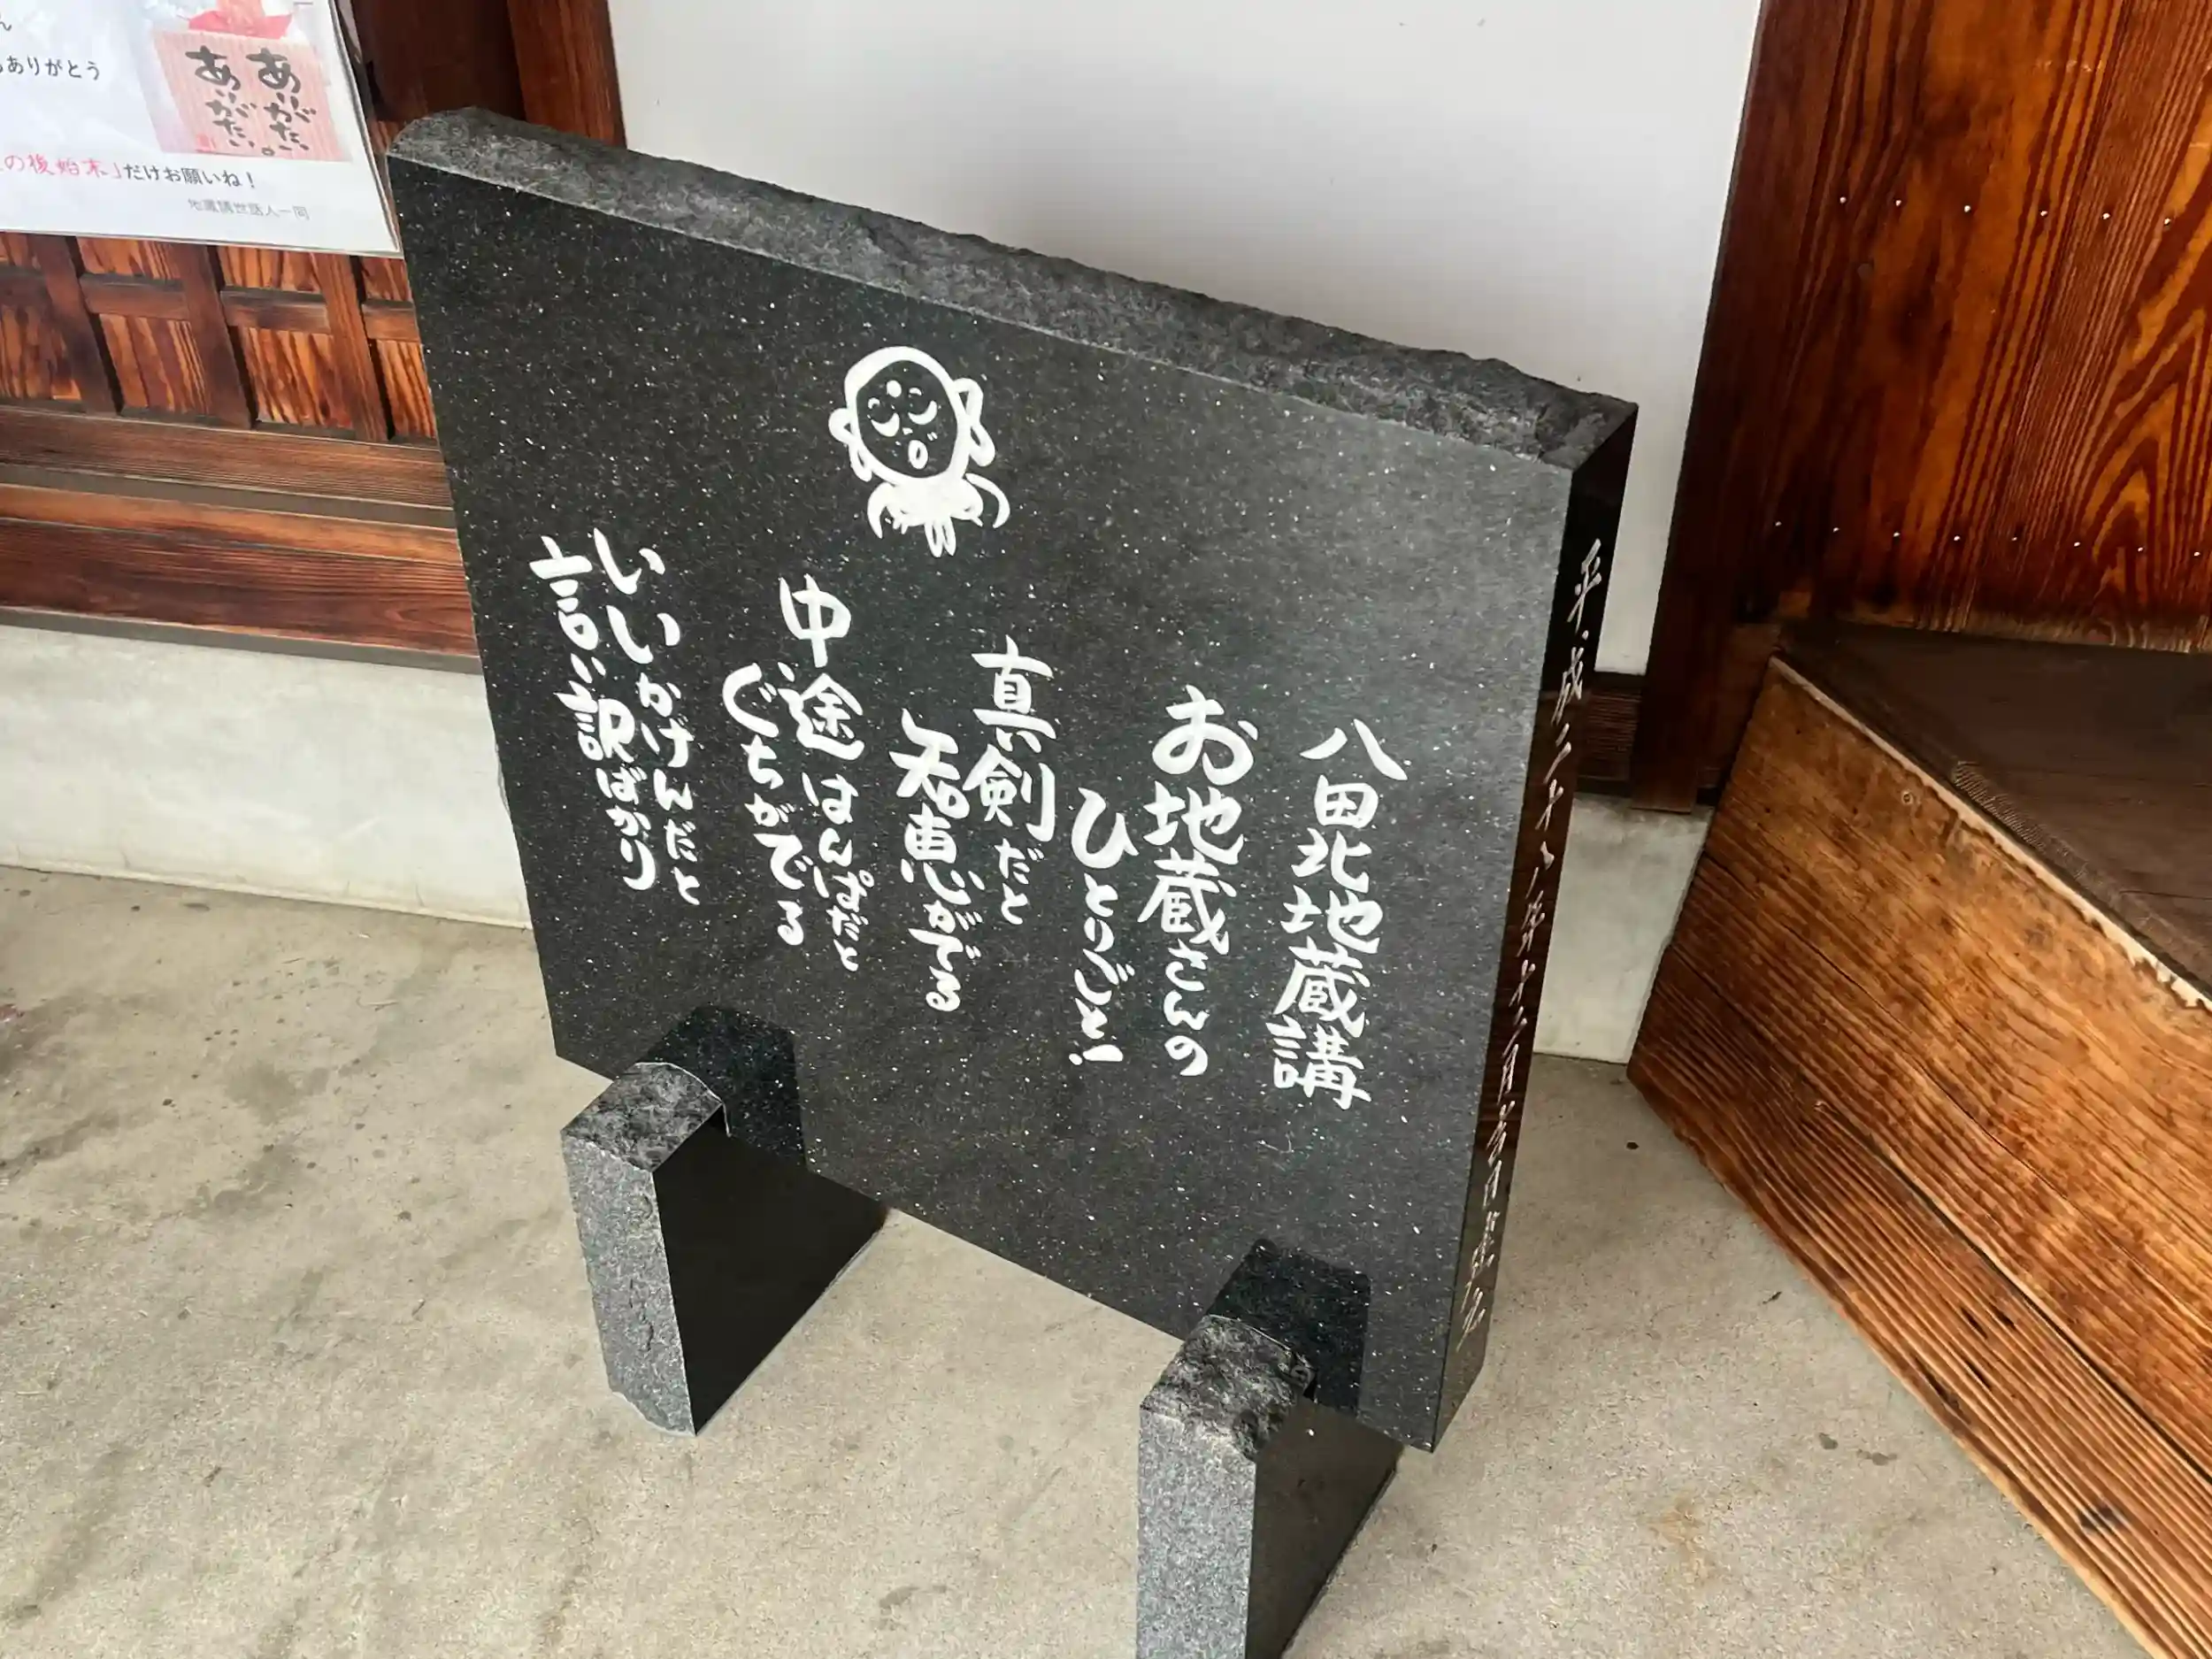 八田北地蔵講
お地蔵さんの
ひとりごと!
真剣だと
知恵がでる
中途はんぱだと
ぐちがでる
いいかげんだと
言い訳ばかり
ありがとう
ありがたい。
ありがたい
の後始末」だけお願いね!
地蔵講世話人一同